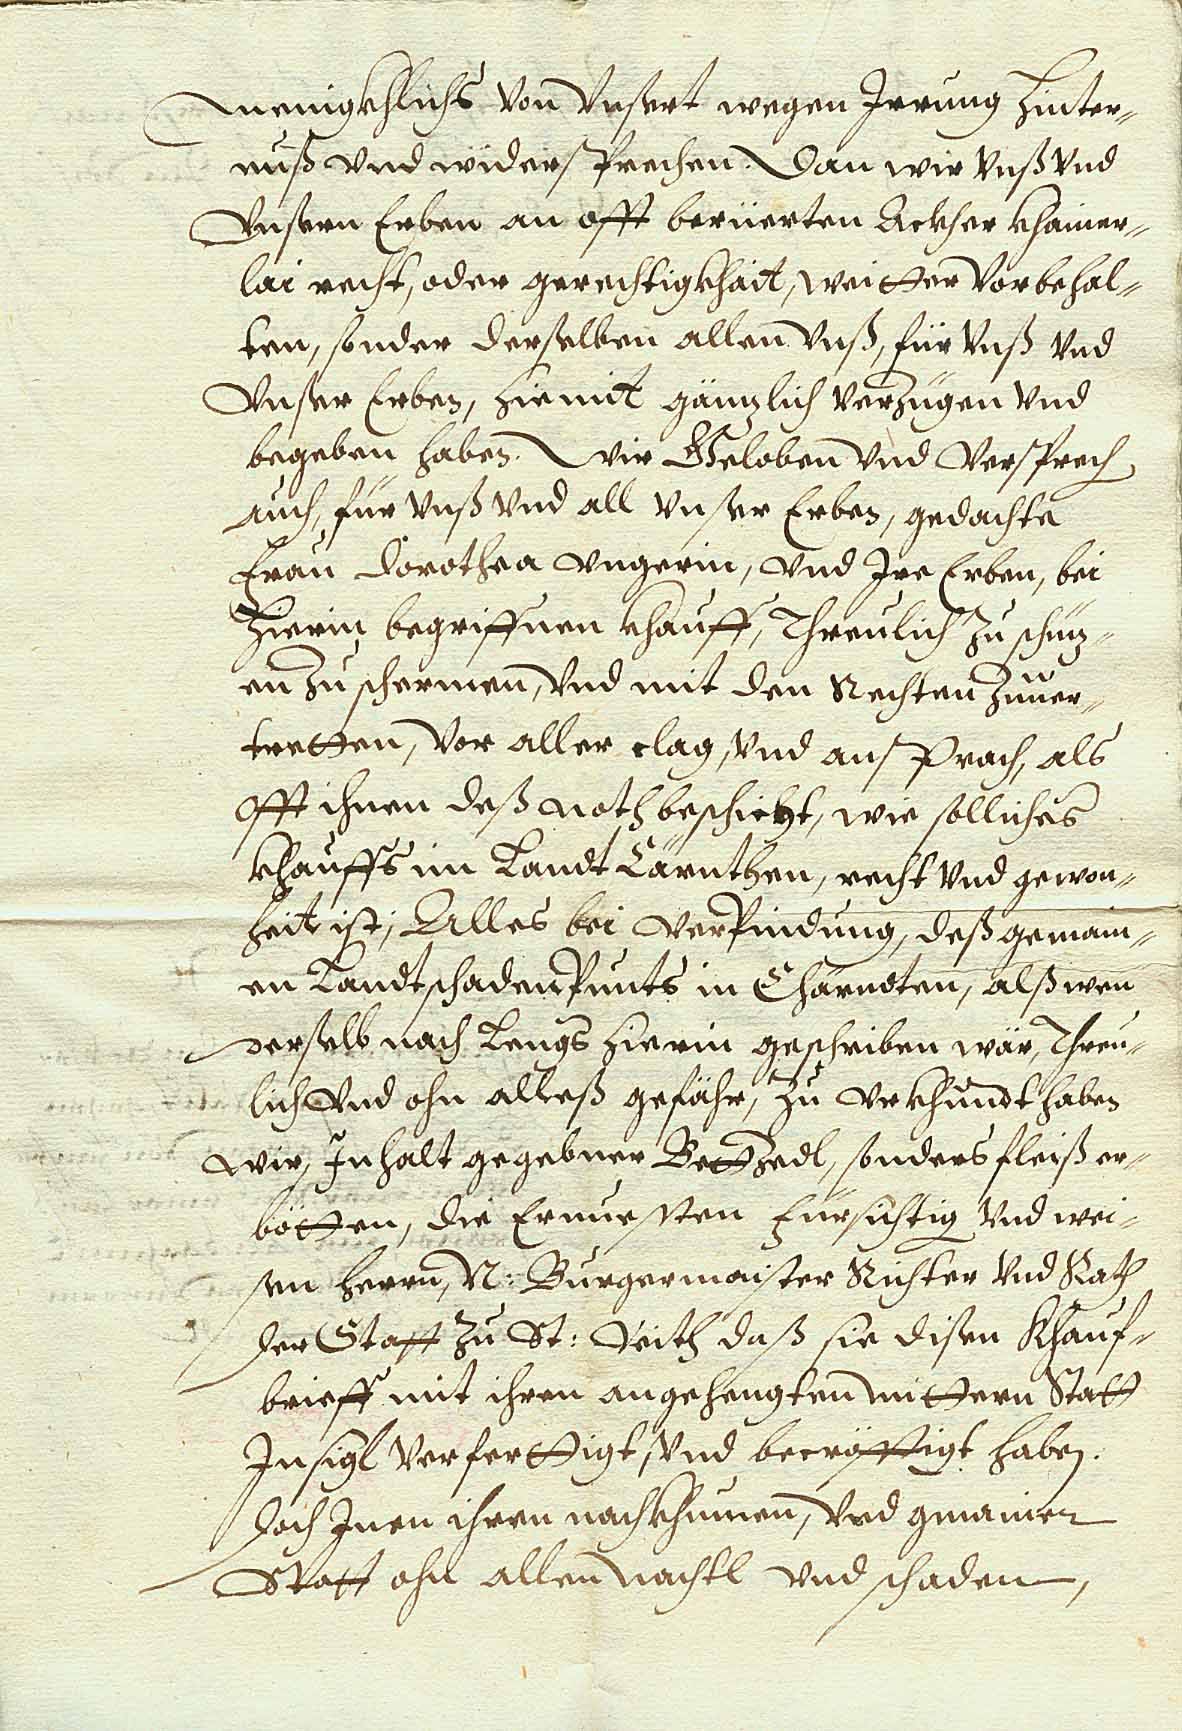 Menigkhlichs von Vnsert wegen Irrung hinter-
nuß vnd widersprechen. Dan wir vnß vnd
Vnsern Erben an offt berüerten Ackher khainer-
lai recht, oder gerechtigkhait, weitter vorbehal-
ten, sonder derselben allen vnß, für vnß vnd
Vnser Erben, hiemit gänzlich verzügen vnd
begeben haben. Wir Geloben vnd versprech
auch, für vnß vnd all vnser Erben, gedachte
Frau Dorothea Vngerin, vnd Ire Erben, bei
hierin begriffnen khauff, Threulich zu schüz-
en zu schermen, vnd mit den Rechten zuuer-
tretten, vor aller clag, vnd ansprach, als
offt ihnen deß noth beschicht, wie solliches
khauffs im Landt Cärnthen, recht vnd gewon-
heit ist, Alles bei verpindung, deß gemain-
en Landtschadenpunts in Chärndten, alß wen
derselb nach Lengs hierin geschriben wär, Threu-
lich vnd ohn alleß gefähr, Zu vrkhundt haben
wir, Inhalt gegebner Bettzedl, sonders fleiß er-
bötten, die Ernuesten Fürsichtig vnd wei-
sen herrn, N: Burgermaister Richter vnd Rath
der Statt zu St: Veith daß sie disen Khauf-
brieff mit ihren angehengten mittern Statt
Insigl verferttigt, vnd becröfftigt haben.
Doch Inen ihren nachkhumen, vnd gmainer
Statt ohn allen nachtl vnd schaden,